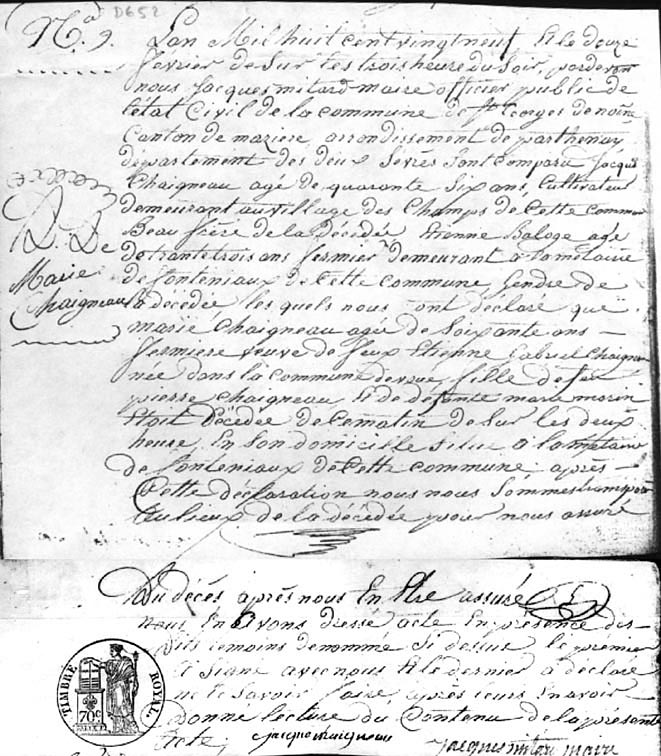 D652
No. 9. Lan Mil huit cent vingt neuf, & le douze
fevrier de sur les trois heure du soir, pardevan
nous Jacques mitard maire officier public de
l'état Civil de la commune de St Georges de noiné
Canton de maziere, arrondissement de parthenay,
département des deux Sevres sont comparu Jacque
Chaigneau agé de quarante six ans, Cultivateur
demeurant au village des Champs de Cette Commune
Beau frere de la décédée Etienne Baloge agé
de trante trois ans fermier demeurant a la métairie
de fonteniaux de Cette commune, Gendre de
la décédée les quels nous ont déclaré que
marie Chaigneau agée de Soixante ans —
fermiere veuve de feux Etienne Gabriel Chaigneau
née dans la commune de vouhé, fille de feu
pierre Chaigneau & de defunte marie morin
Etoit décédée de Ce matin de Sur les deux
heure En Son domicille situé a la métairie
de fonteniaux de Cette commune; après —
Cette déclaration nous nous Sommes transporté
Au lieux de la décédée pour nous assuré
D. De
Marie
Chaigneau
Du décés après nous En Etre assuré
nous En avons dressé acte En présence des
dits temoins denommé Si dessus le premier
a Signé avec nous & le dernier a déclaré
ne le Savoir faire, après leurs En avoir
donné lecture du Contenu de la présente
Acte; Jacque chaigneau Jacques mitard maire
TIMBRE ROYAL
70c